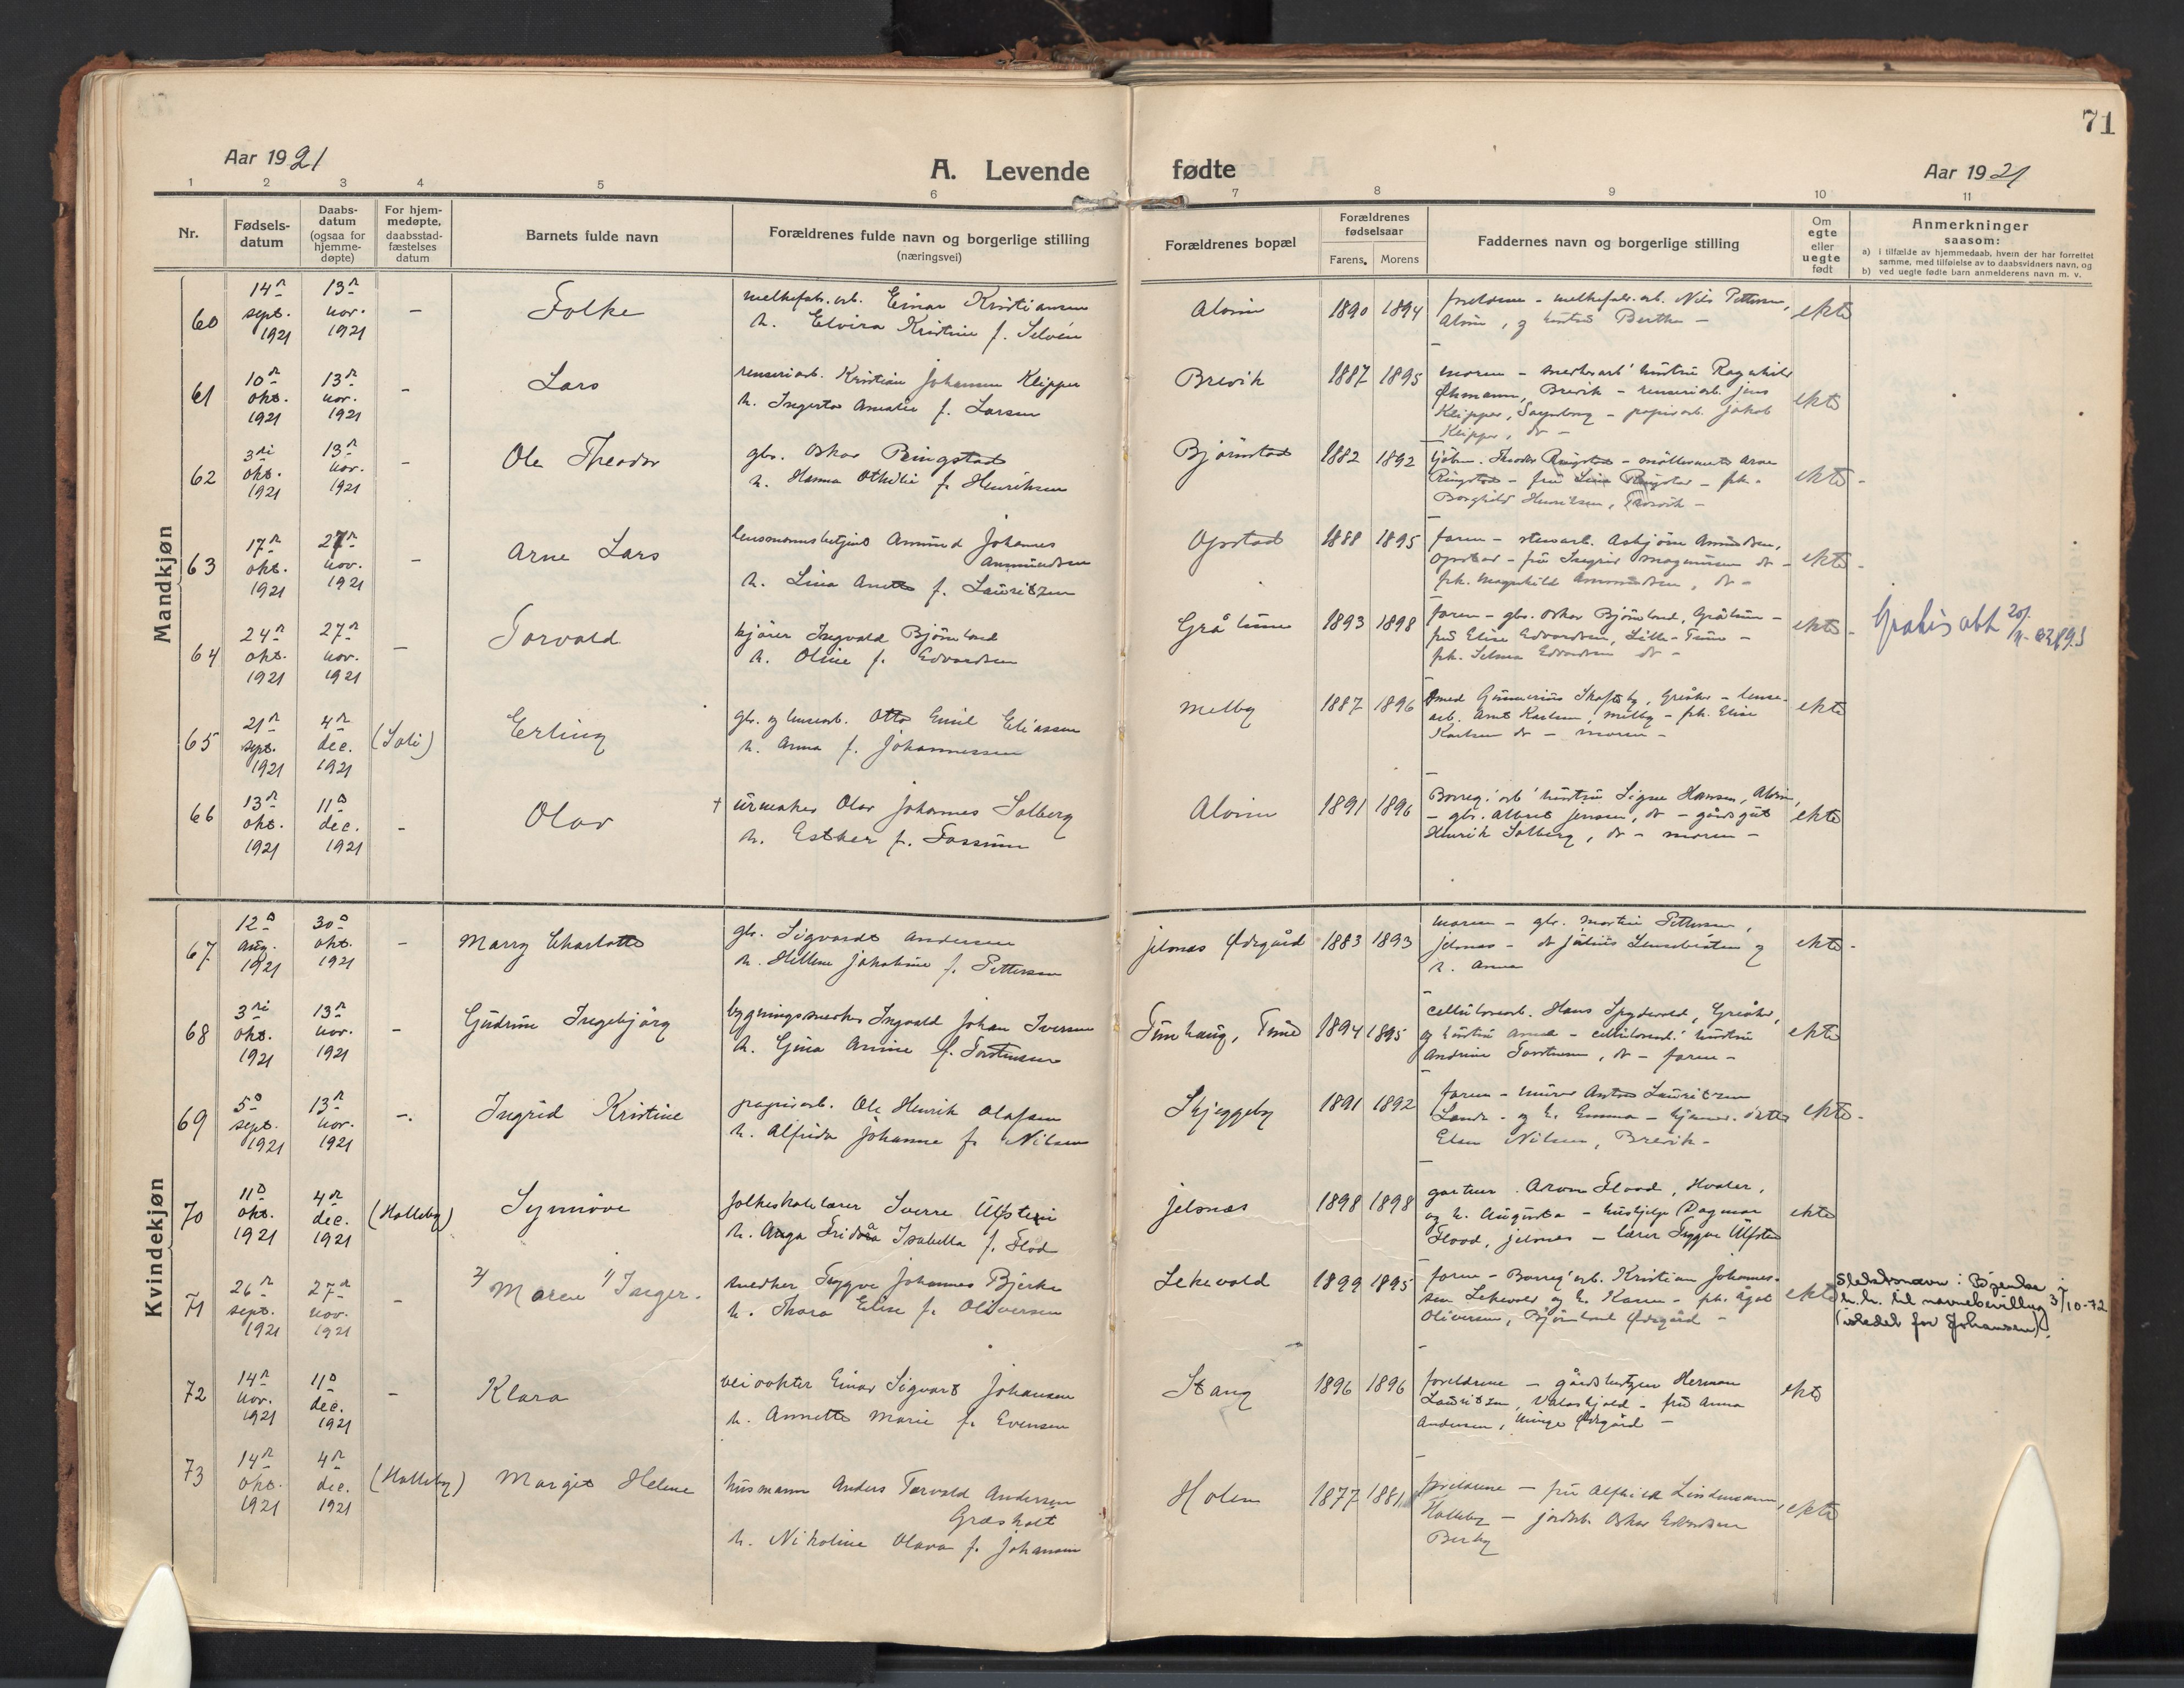 71
Aar 1921
A. Levende fødte
Aar 1921
1 2 3 4 5 6 7 8 9 10 11
Nr.
Fødsels-
datum
Daabs-
datum
(ogsaa for
hjemme-
døpte)
For hjem-
medøpte,
daabsstad-
fæstelses
datum
Barnets fulde navn
Forældrenes fulde navn og borgerlige stilling
(næringsvei)
Forældrenes bopæl
Forældrenes
fødselsaar
Farens. Morens
Faddernes navn og borgerlige stilling
Om
egte
eller
uegte
født
Anmerkninger
saasom:
a) i tilfælde av hjemmedaab, hvem der har forrettet
samme, med tilføielse av to daabsvidners navn, og
b) ved uegte fødte barn anmelderens navn m. v.
Mandkjøn
60 14n sept. 1921 13n nov. 1921 - Folke
melkefab. arb. Einar Kristiansen
h. Elvira Kristine f. Selvén
Alvim 1890 1894
foreldrene - melkefab. arb. Nils Pettersen,
Alvim, og hustru Berthe -
ekte
61 10n okt. 1921 13n nov. 1921 - Lars
renseriarb. Kristian Johansen Klipper
h. Ingerta Amalie f. Larsen
Brevik 1887 1895
moren - snekkerarb' hustru Ragnhild
Öhmann, Brevik - renseriarb. Jens
Klipper, Sarpsborg - papirarb. Jakob
Klipper, do -
ekte
62 3di okt. 1921 13n nov. 1921 - Ole Theodor
gbr. Oskar Ringstad
h. Hanna Othilie f. Henriksen
Bjørnstad 1882 1892
Theodor Ringstad - Arne
Ringstad - fru Ringstad - frk.
Borghild Henriksen,
ekte -
63 17n okt. 1921 27n nov. 1921 - Arne Lars
lensmannsbetjent Amund Johannes
Ammundsen
h. Lina Anette f. Lauritzen
Opstad 1888 1895
faren - stenarb. Asbjörn Amundsen,
Opstad - fru Ingrid Magnussen do -
frk. Magnhild Ammundsen, do -
ekte -
64 24n okt. 1921 27n nov. 1921 - Torvald
kjører Ingvald Bjørnland
h. Oline f. Edvardsen
Grålum 1893 1898
faren - gbr. Oskar Bjørnland, Grålum -
fru Elise Edvardsen, Lille-Tune -
frk. Selma Edvardsen do -
ekte -
Gratis att 20/
65 21n sept. 1921 4n dec. 1921 (Soli) Erling
gbr. og lensearb. Otto Emil Eliassen
h. Anna f. Johannessen
Melby 1887 1896
smed Gunnerius Skofteby, Greåker - lense-
arb. Arnt Karlsen, Melby - frk. Elise
Karlsen do - moren -
ekte
66 13n okt. 1921 11n dec. 1921 - Olav
+ urmaker Olav Johannes Solberg
h. Esther f. Fossum
Alvim 1891 1896
Borreg.'arb' hustru Signe Hansen, Alvim,
- gbr. Albert Jensen, do - gårdsgut
Henrik Solberg, do - moren -
ekte
Kvindekjøn
67 12n aug. 1921 30n okt. 1921 - Marry Charlotte
gbr. Sigvardt Andersen
h. Hellene Jakobine f. Pettersen
Jelsnes Ödegård 1883 1893
moren - gbr. Martin Pettersen,
Jelsnes - do Julius og
h. Anna
ekte -
68 3di okt. 1921 13n nov. 1921 - Gudrun Ingebjörg
bygningssnekker Ingvald Johan Iversen
h. Gina Amine f. Torstensen
Tunhaug, Tune 1894 1895
cellulosearb. Hans Spydevold, Greåker,
og hustru Anna - cellulosearb.' hustru
Andrine Torstensen, do - faren -
ekte
69 5n sept. 1921 13n nov. 1921 -. Ingrid Kristine
papirarb. Ole Henrik Olafsen
h. Alfrida Johanne f. Nilsen
Skjeggeby 1891 1892
faren - murer Anton Lauritzen
Lande - og h. Emma -
Elsa Nilsen, Brevik -
ekte -
70 11n okt. 1921 4n dec. 1921 (Holleby) Synnöve
folkeskolelærer Sverre Ulfsten
h. Aaga Fridora Isabella f. Flod
Jelsnes 1898 1898
gartner. Aron Flood, Hvaler,
og h. Augusta - hushjelp Dagmar
Flood, Jelsnes - lærer Trygve Ulfsten
ekte
71 26n sept. 1921 27n nov. 1921 - 2/ Maren 1/ Inger.
snedker Trygve Johannes Bjerke
h. Thora Elise f. Oliversen
Lekevold 1899 1895
faren - Borreg'arb. Kristian Johannes-
sen Lekevold og h. Karen - frk. Agot
Oliversen, Bjørnland Ödegård -
ekte
Slektsnavn: Bjerke i
h.h. til navnebevilling 3/10-72
(istedet for Johansen).
72 14n nov. 1921 11n dec. 1921 - Klara
veivokter Einar Sigvart Johansen
h. Annette Marie f. Evensen
Stang 1896 1896
foreldrene - gårdbruger Herman
Lauritzen, Valaskjold - fru Anna
Andersen, Minge Ödegård -
ekte
73 14n okt. 1921 4n dec. 1921 (Holleby) Margit Helene
husmann Anders Torvald Andersen
Græsholt
h. Nikoline Olava f. Johansen
Holm 1877 1881
foreldrene - fru Alfhild Lindemann,
Holleby - jordarb. Oskar Edvardsen
Berby
ekte